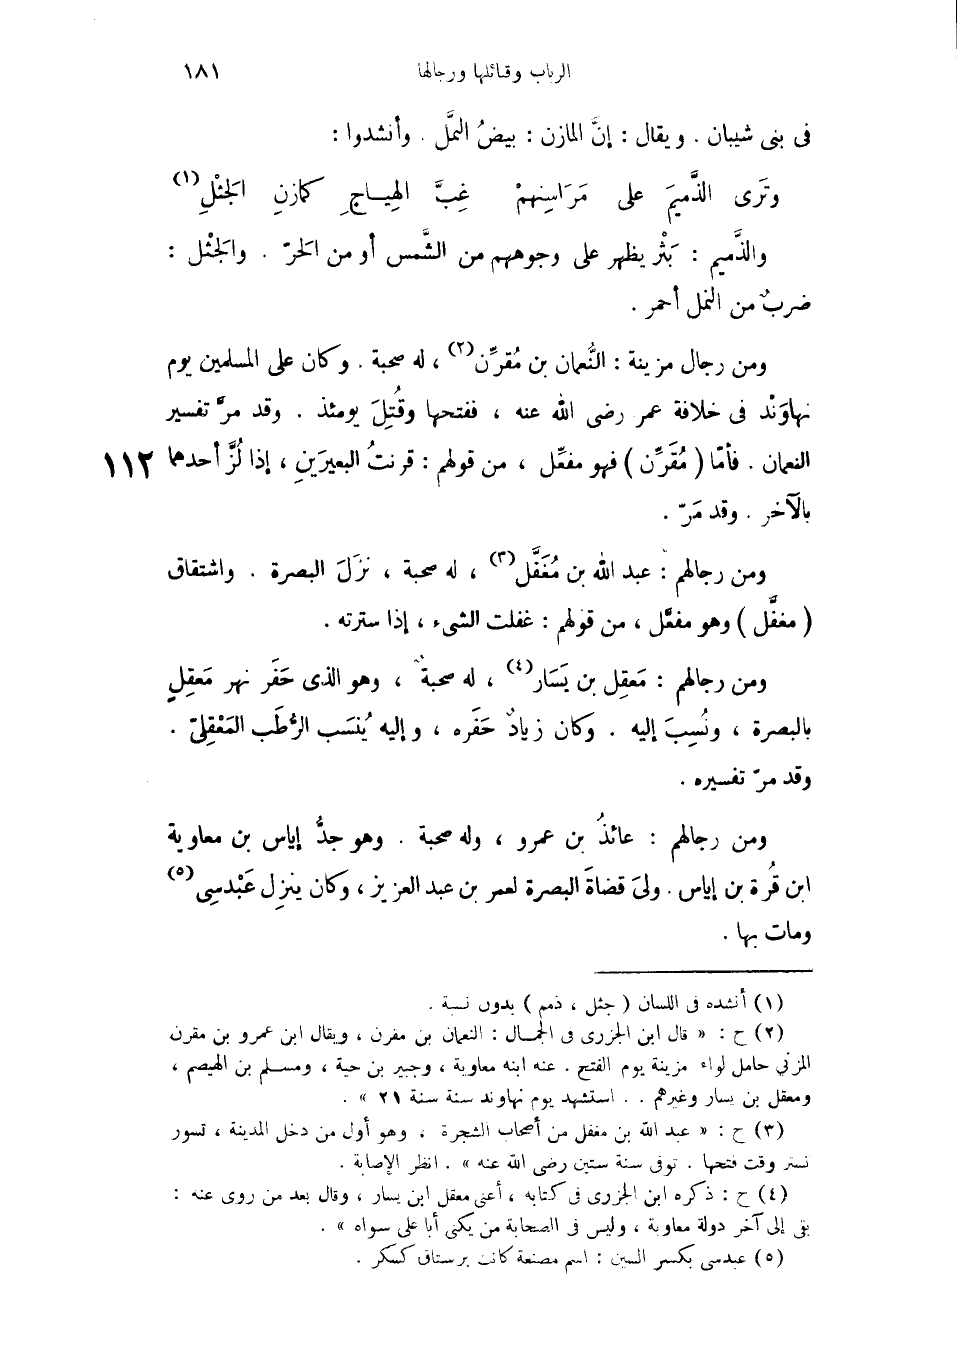 الرباب وقبائلها ورجالها ١٨١
فى بنى شيبان . ويقال : إنَّ المازن : بيضُ النَّمل . وأنشدوا :
وتَرى الذَّميمَ على مَرَاسِنِهمْ غِبَّ الهِيـاجِ كمازنِ الجَثْلِ(١)
والذَّميم : بَثْر يظهر على وجوههم من الشَّمس أو من الحَرّ . والجَثْل :
ضربٌ من النمل أحمر .
ومن رجال مزينة : النُّعمان بن مُقرِّن(٢) ، له صحبة . وكان على المسلمين يوم
نهاوَنْد فى خلافة عمر رضى الله عنه ، ففتحها وقُتِلَ يومئذ . وقد مرَّ تفسير
النعمان . فأمّا ( مُقَرِّن ) فهو مفعِّل ، من قولهم : قرنتُ البعيرَينِ ، إذا لُزَّ أحدهما ١١٢
بالآخر . وقد مَرّ .
ومن رجالهم : عبد الله بن مُغَفَّل(٣) ، له صحبة ، نزَلَ البصرة . واشتقاق
( مغفَّل ) وهو مفعَّل ، من قولهم : غفلت الشىء ، إذا سترته .
ومن رجالهم : مَعقِل بن يَسَار(٤) ، له صحبةٌ ، وهو الذى حَفَر نهر مَعقِلٍ
بالبصرة ، ونُسِبَ إليه . وكان زيادٌ حَفَره ، وإليه يُنسَب الرُّطَب المَعْقِلىّ .
وقد مرّ تفسيره .
ومن رجالهم : عائذُ بن عمرو ، وله صحبة . وهو جدُّ إياس بن معاوية
ابن قُرة بن إياس . ولىَ قضاءَ البصرة لعمر بن عبد العزيز ، وكان ينزل عَبْدسِى(٥)
ومات بها .
(١) أنشده فى اللسان ( جثل ، ذمم ) بدون نسبة .
(٢) ح : « قال ابن الجزرى فى الجمـال : النعمان بن مقرن ، ويقال ابن عمرو بن مقرن
المزنى حامل لواء مزينة يوم الفتح . عنه ابنه معاوية ، وجبير بن حية ، ومسـلم بن الهيصم ،
ومعقل بن يسار وغيرهم . . استشهد يوم نهاوند سنة سنة ٢١ » .
(٣) ح : « عبد الله بن مغفل من أصحاب الشجرة ، وهو أول من دخل المدينة ، تسور
تستر وقت فتحها . توفى سنة ستين رضى الله عنه » . انظر الإصابة .
(٤) ح : ذكره ابن الجزرى فى كتابه ، أعنى معقل ابن يسار ، وقال بعد من روى عنه :
بقى إلى آخر دولة معاوية ، وليس فى الصحابة من يكنى أبا على سواه » .
(٥) عبدسى بكسر السين : اسم مصنعة كانت برستاق كسكر .